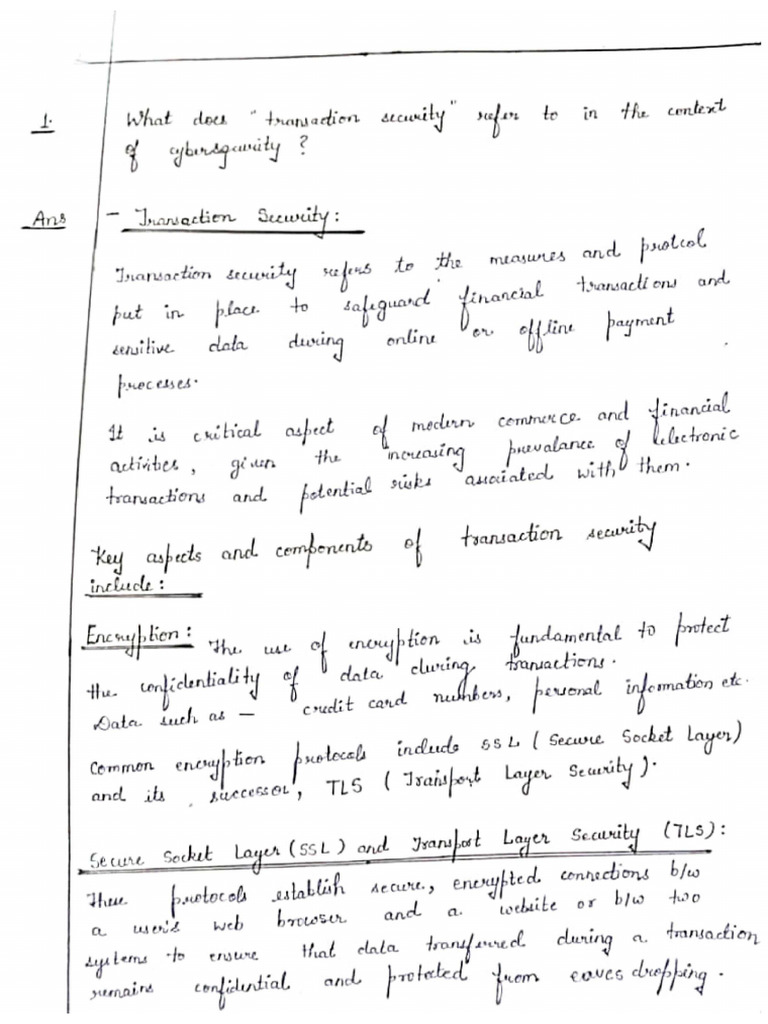 1. What does "transaction security" refer to in the context
of cybersecurity ?
Ans - Transaction Security :
Transaction security refers to the measures and protcol
put in place to safeguard financial transactions and
sensitive data during online or offline payment
processes.
It is critical aspect of modern commerce and financial
activities, given the increasing prevalance of electronic
transactions and potential risks associated with them.
Key aspects and components of transaction security
include :
Encryption : The use of encryption is fundamental to protect
the confidentiality of data during transactions.
Data such as - credit card numbers, personal information etc.
Common encryption protocols include SSL ( Secure Socket Layer)
and its successor, TLS ( Transport Layer Security ).
Secure Socket Layer (SSL) and Transport Layer Security (TLS) :
These protocols establish secure, encrypted connections b/w
a user's web browser and a website or b/w two
systems to ensure that data transferred during a transaction
remains confidential and protected from eaves dropping.